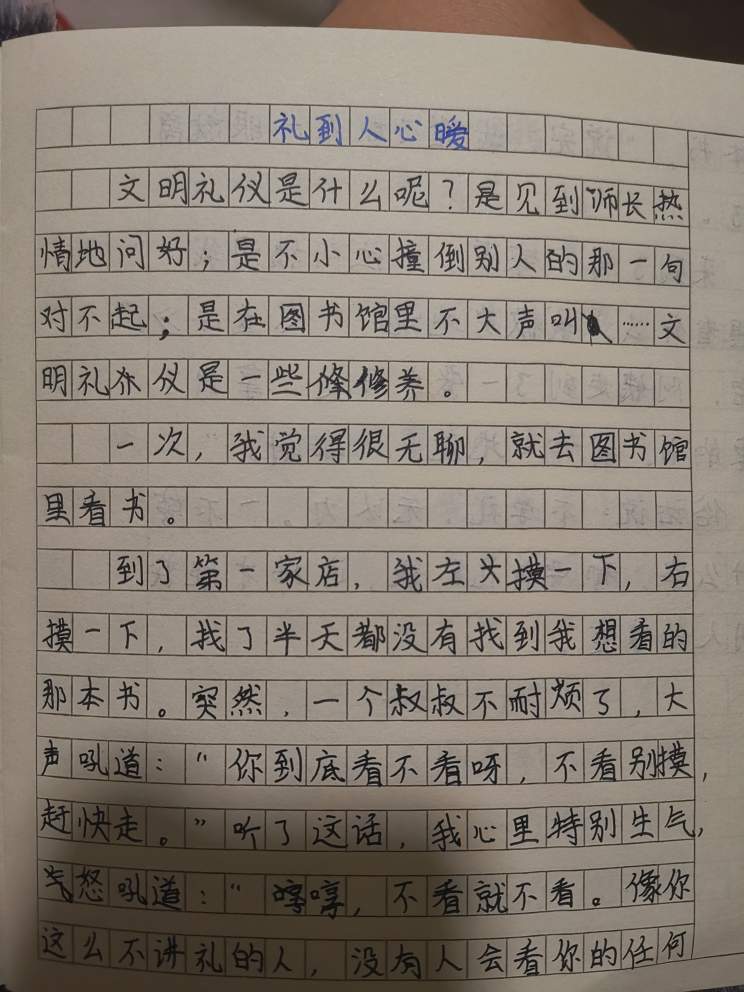 礼到人心暖
文明礼仪是什么呢？是见到师长热
情地问好；是不小心撞倒别人的那一句
对不起；是在图书馆里不大声叫……文
明礼仪是一些修养。
一次，我觉得很无聊，就去图书馆
里看书。
到了第一家店，我左头摸一下，右
摸一下，找了半天都没有找到我想看的
那本书。突然，一个叔叔不耐烦了，大
声吼道：“你到底看不看呀，不看别摸，
赶快走。”听了这话，我心里特别生气，
气怒吼道：“哼哼，不看就不看。像你
这么不讲礼的人，没有人会看你的任何